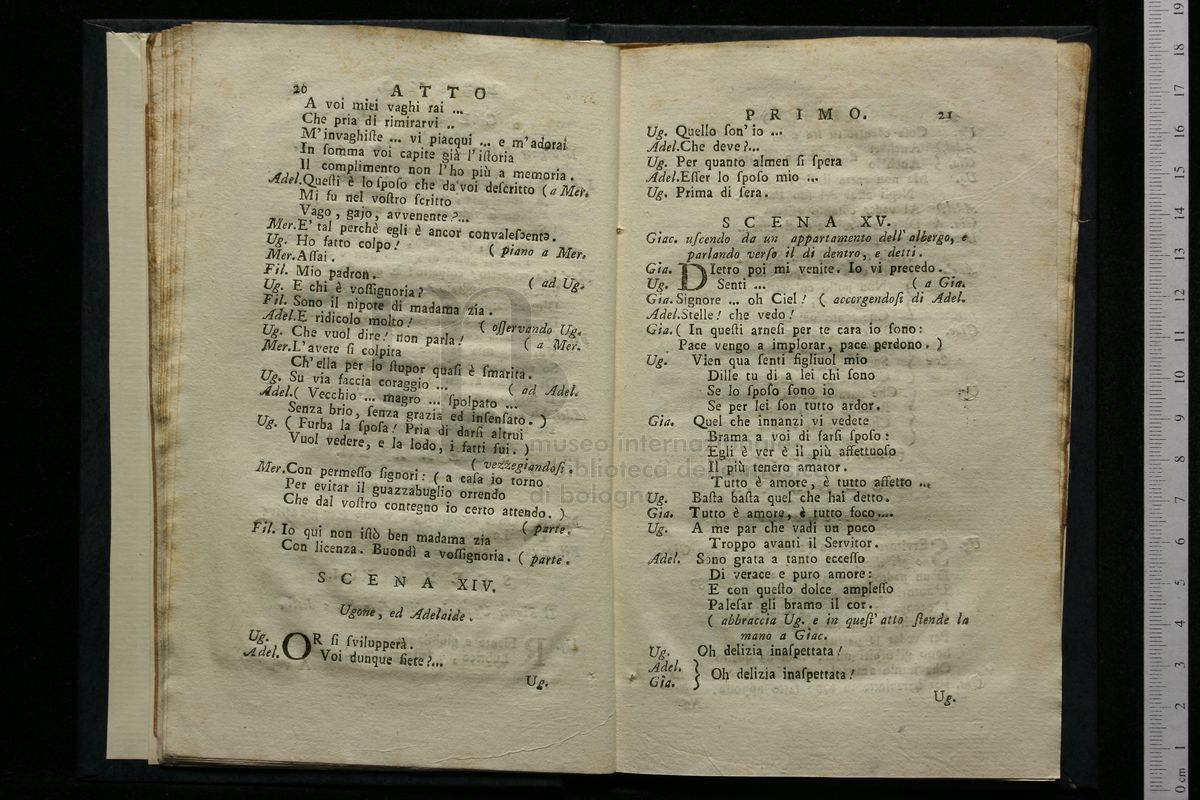 20 ATTO
A voi miei vaghi rai ...
Che pria di rimirarvi ..
M'invaghiſte ... vi piacqui ... e m'adorai
In ſomma voi capite già l'iſtoria
Il complimento non l'ho più a memoria.
Adel. Queſti è lo ſpoſo che da voi deſcritto ( a Mer.
Mi fu nel voſtro ſcritto
Vago, gajo, avvenente?...
Mer. E' tal perchè egli è ancor convaleſcente.
Ug. Ho fatto colpo! ( piano a Mer.
Mer. Aſſai.
Fil. Mio padron.
Ug. E chi è voſſignoria? ( ad Ug.
Fil. Sono il nipote di madama zia.
Adel. E ridicolo molto! ( oſſervando Ug.
Ug. Che vuol dire! non parla! ( a Mer.
Mer. L'avete ſi colpita
Ch'ella per lo ſtupor quaſi è ſmarita.
Ug. Su via faccia coraggio ... ( ad Adel.
Adel. ( Vecchio ... magro ... ſpolpato ...
Senza brio, ſenza grazia ed inſenſato. )
Ug. ( Furba la ſpoſa! Pria di darſi altrui
Vuol vedere, e la lodo, i fatti ſui. )
( vezzegiandoſi.
Mer. Con permeſſo ſignori: ( a caſa io torno
Per evitar il guazzabuglio orrendo
Che dal voſtro contegno io certo attendo. )
( parte.
Fil. Io qui non iſtò ben madama zia
Con licenza. Buondì a voſſignoria. ( parte.
SCENA XIV.
Ugone, ed Adelaide.
Ug. OR ſi ſvilupperà.
Adel. Voi dunque ſiete?...
Ug.
PRIMO. 21
Ug. Quello ſon' io ...
Adel. Che deve?...
Ug. Per quanto almen ſi ſpera
Adel. Eſſer lo ſpoſo mio ...
Ug. Prima di ſera.
SCENA XV.
Giac. uſcendo da un appartamento dell'albergo, e
parlando verſo il di dentro, e detti.
Gia. DIetro poi mi venite. Io vi precedo.
Ug. Senti ... ( a Gia.
Gia. Signore ... oh Ciel! ( accorgendoſi di Adel.
Adel. Stelle! che vedo!
Gia. ( In queſti arneſi per te cara io ſono:
Pace vengo a implorar, pace perdono. )
Ug. Vien qua ſenti figliuol mio
Dille tu di a lei chi ſono
Se lo ſpoſo ſono io
Se per lei ſon tutto ardor.
Gia. Quel che innanzi vi vedete
Brama a voi di farſi ſpoſo:
Egli è ver è il più affettuoſo
Il più tenero amator.
Tutto è amore, è tutto affetto ...
Ug. Baſta baſta quel che hai detto.
Gia. Tutto è amore, è tutto foco....
Ug. A me par che vadi un poco
Troppo avanti il Servitor.
Adel. Sono grata a tanto ecceſſo
Di verace e puro amore:
E con queſto dolce ampleſſo
Paleſar gli bramo il cor.
( abbraccia Ug. e in queſt' atto ſtende la
mano a Giac.
Ug. Oh delizia inaſpettata!
Adel.
Gia. } Oh delizia inaſpettata!
Ug.
museo internazionale
biblioteca della musica
di bologna